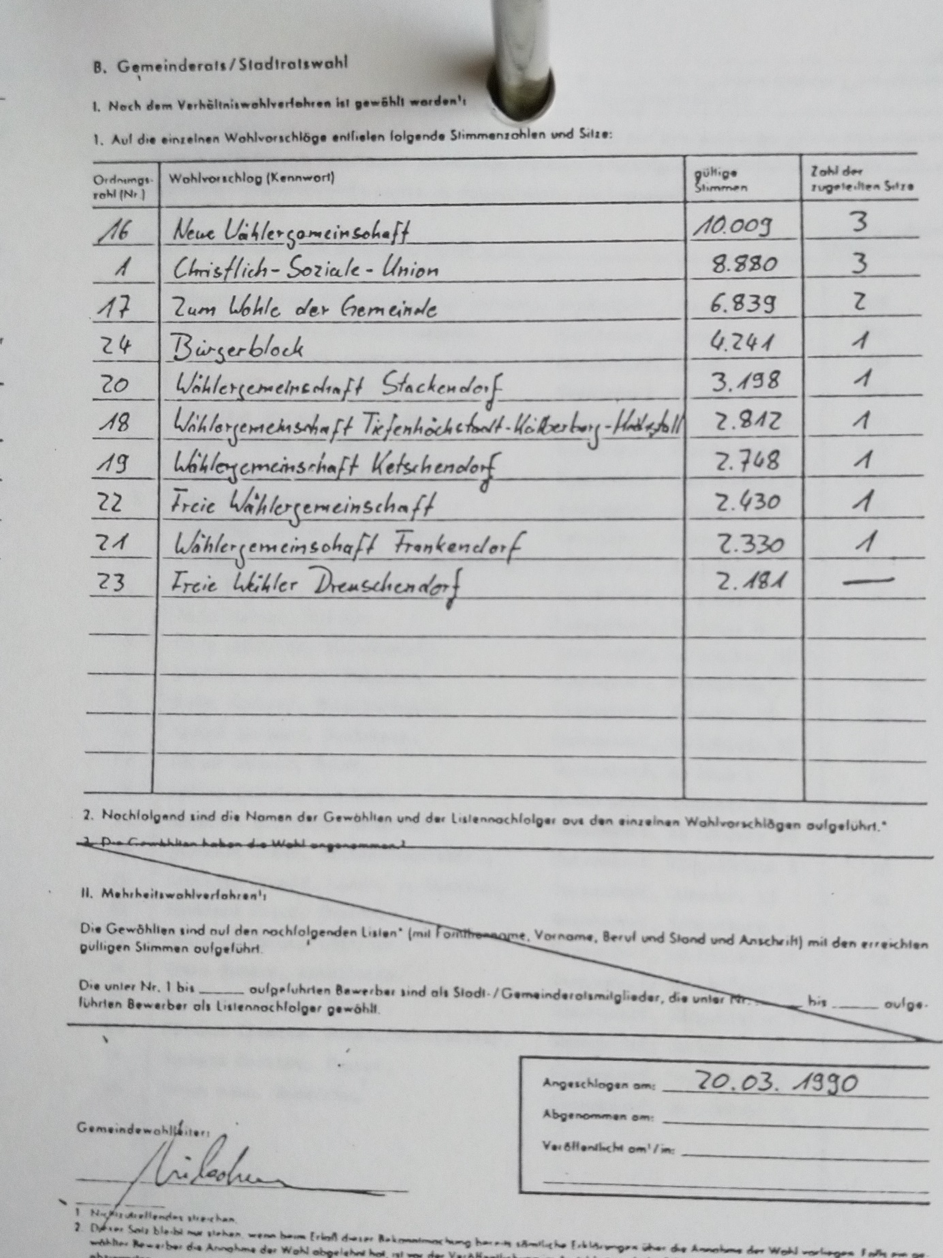 B. Gemeinderats/Stadtratswahl
I. Nach dem Verhältniswahlverfahren ist gewählt worden¹:
1. Auf die einzelnen Wahlvorschläge entfielen folgende Stimmenzahlen und Sitze:
Ordnungs-zahl (Nr.) Wahlvorschlag (Kennwort) gültige Stimmen Zahl der zugeteilten Sitze
16 Neue Wählergemeinschaft 10.009 3
1 Christlich-Soziale-Union 8.880 3
17 Zum Wohle der Gemeinde 6.839 2
24 Bürgerblock 4.241 1
20 Wählergemeinschaft Stackendorf 3.198 1
18 Wählergemeinschaft Tiefenhöchstadt-Kälberberg- 2.812 1
19 Wählergemeinschaft Ketschendorf 2.748 1
22 Freie Wählergemeinschaft 2.430 1
21 Wählergemeinschaft Frankendorf 2.330 1
23 Freie Wähler Dreuschendorf 2.181 —
2. Nachfolgend sind die Namen der Gewählten und der Listennachfolger aus den einzelnen Wahlvorschlägen aufgeführt.*
3. Die Gewählten haben die Wahl angenommen.²
II. Mehrheitswahlverfahren¹:
Die Gewählten sind auf den nachfolgenden Listen* (mit Familienname, Vorname, Beruf und Stand und Anschrift) mit den erreichten
gültigen Stimmen aufgeführt.
Die unter Nr. 1 bis ______ aufgeführten Bewerber sind als Stadt-/Gemeinderatsmitglieder, die unter Nr. ______ bis ______ aufge-
führten Bewerber als Listennachfolger gewählt.
Angeschlagen am: 20.03. 1990
Abgenommen am:
Veröffentlicht am¹/in:
Gemeindewahlleiter:
1 Nichtzutreffendes streichen.
2 Dieser Satz bleibt nur stehen, wenn beim Erlaß dieser Bekanntmachung bereits sämtliche Erklärungen über die Annahme der Wahl vorliegen. Falls ein ge-
wählter Bewerber die Annahme der Wahl abgelehnt hat, ist vor der